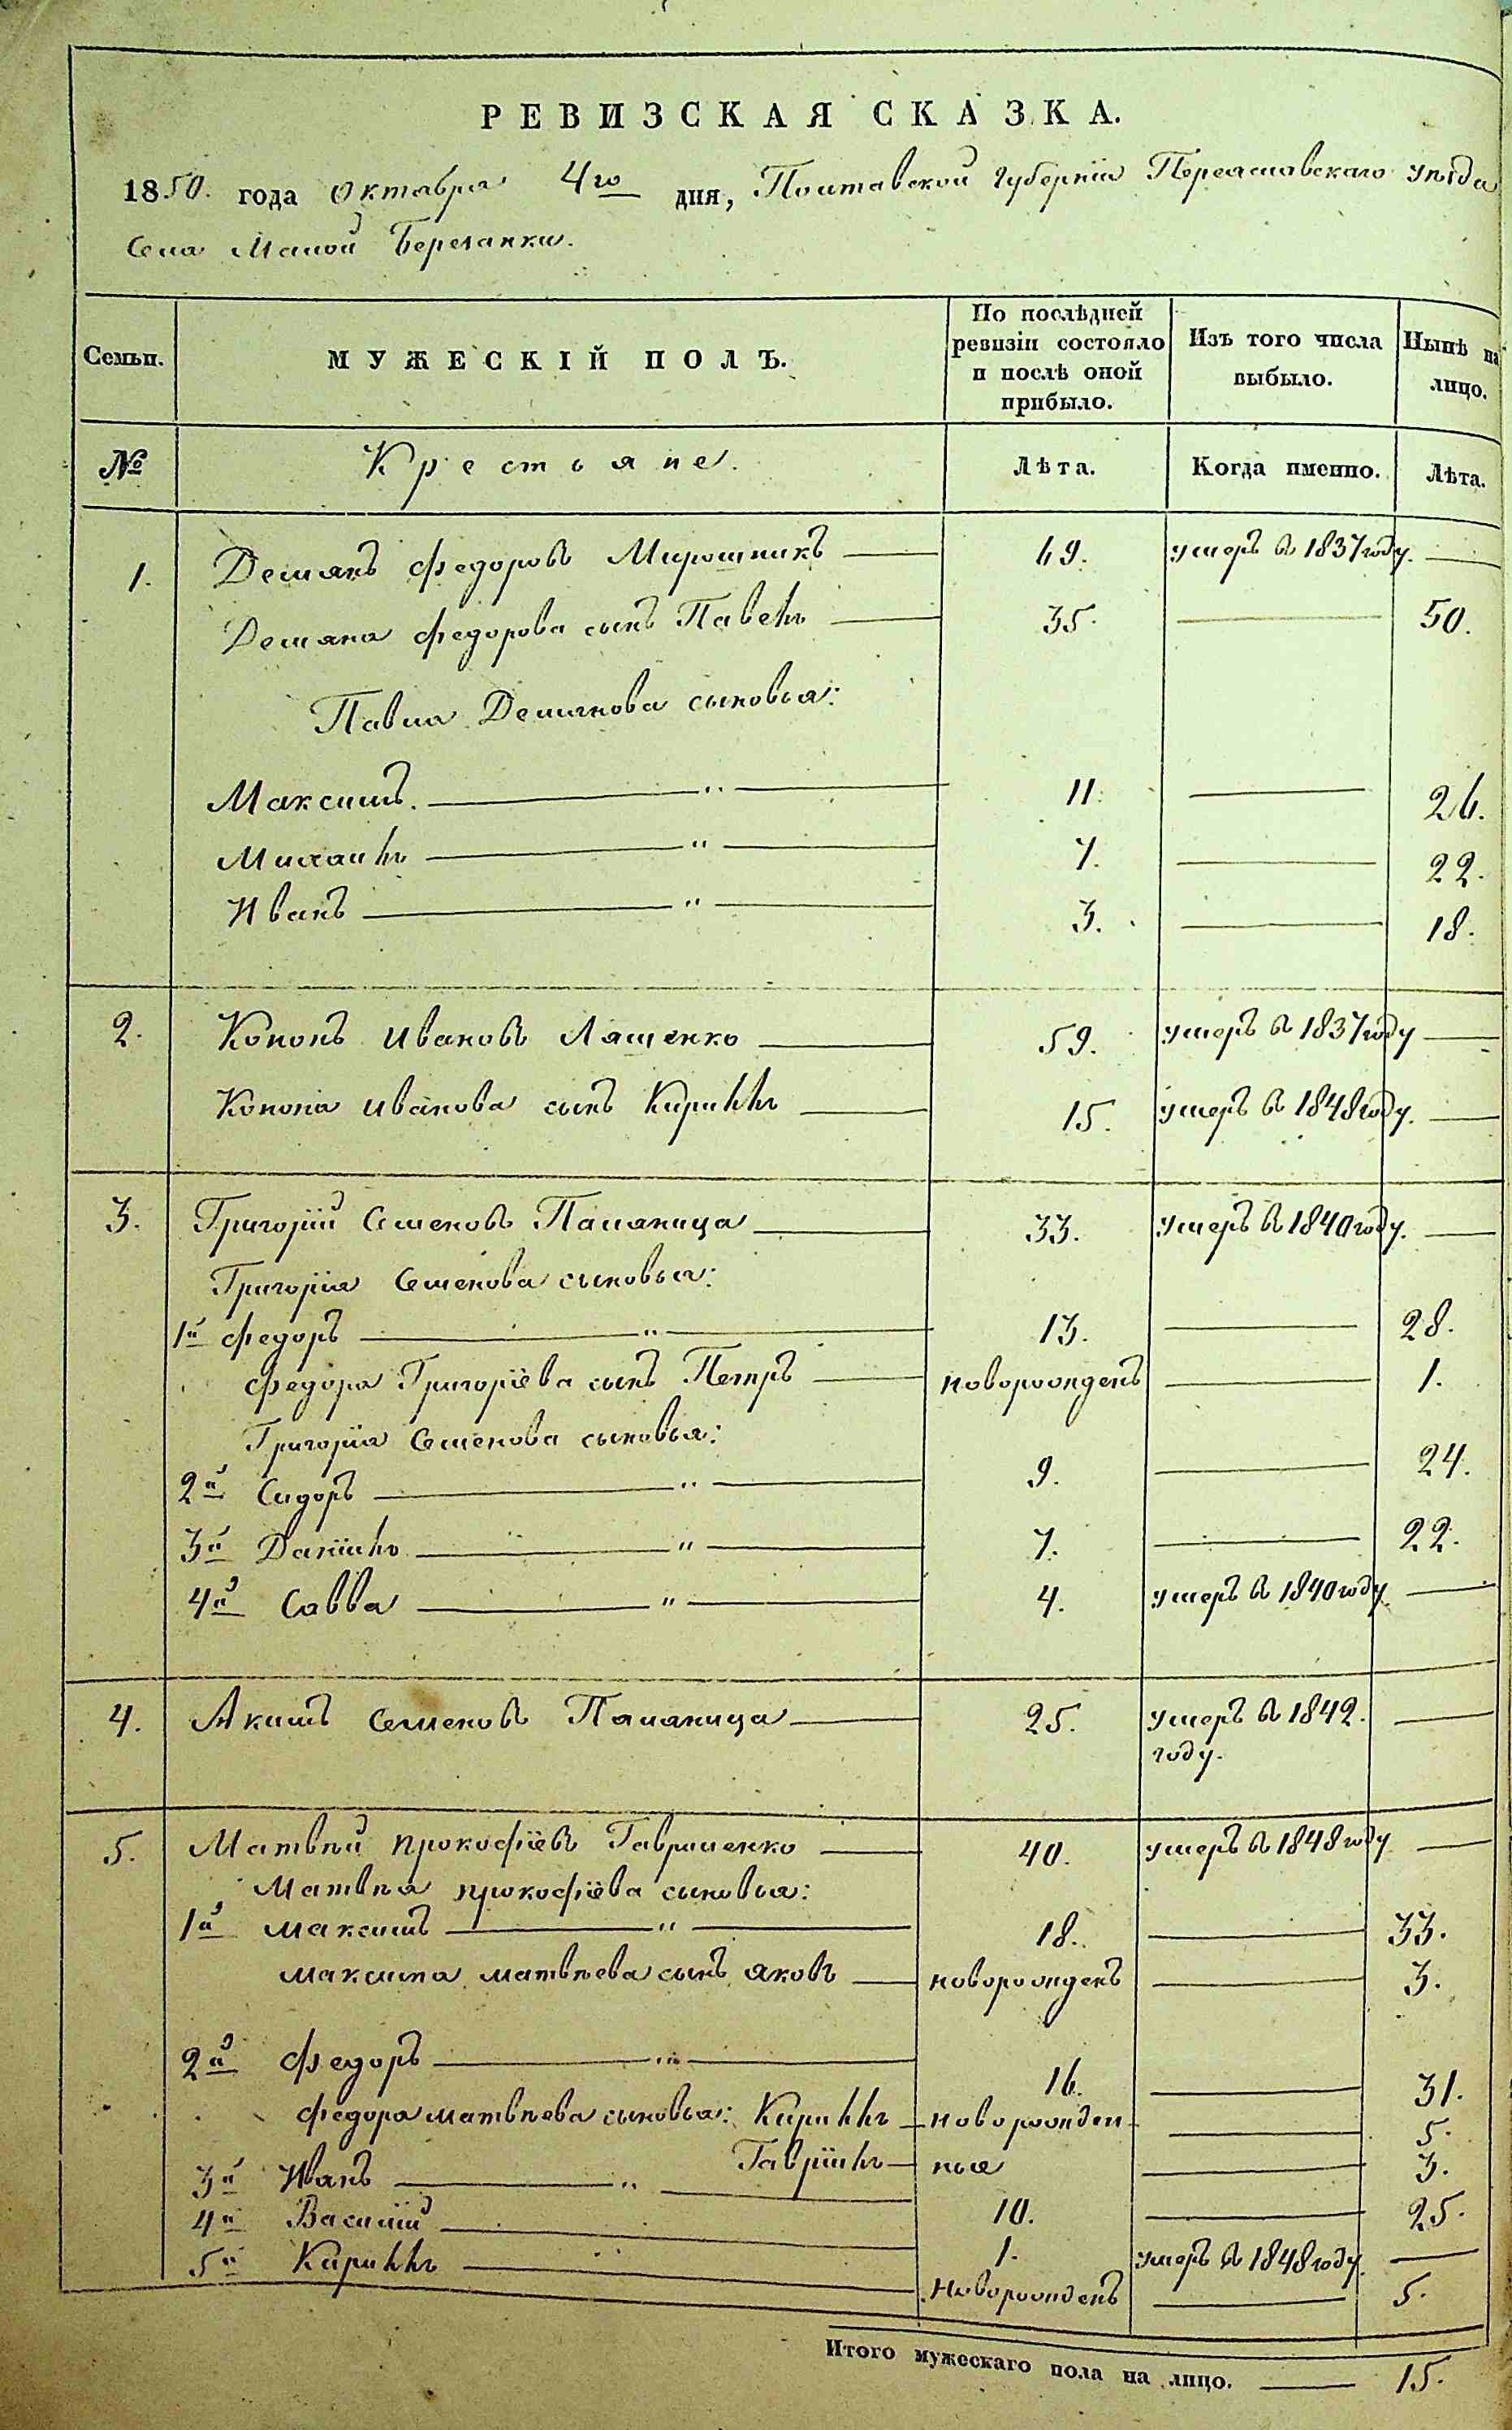 РЕВИЗСКАЯ СКАЗКА.
1850. года октября 4го дня, Полтавской губерніи Переяславскаго уѣзда
Села Малой Березанки.
Семьи. МУЖЕСКІЙ ПОЛЪ. По послѣдней ревизіи состояло и послѣ оной прибыло. Изъ того числа выбыло. Нынѣ на лицо.
№ Крестьяне. Лѣта. Когда именно. Лѣта.
1. Демянъ Федоровъ Мирошникъ — 69. умеръ въ 1837 году. —
Демяна Федорова сынъ Павелъ — 35. — 50.
Павла Демянова сыновья:
Максимъ. — " — 11. — 26.
Михаилъ — " — 7. — 22.
Иванъ — " — 3. — 18.
2. Кононъ Ивановъ Ляшенко — 59. умеръ въ 1837 году —
Конона Иванова сынъ Кириллъ — 15. умеръ въ 1848 году. —
3. Григорій Семеновъ Паляница — 33. умеръ въ 1840 году. —
Григорія Семенова сыновья:
1й Федоръ — " — 13. — 28.
Федора Григоріева сынъ Петръ — новорожденъ — 1.
Григорія Семенова сыновья:
2й Сидоръ — " — 9. — 24.
3й Даніилъ — " — 7. — 22.
4й Савва — " — 4. умеръ въ 1840 году. —
4. Акимъ Семеновъ Паляница — 25. умеръ въ 1842. —
году.
5. Матвѣй Прокофіевъ Гавриленко — 40. умеръ въ 1848 году —
Матвѣя Прокофіева сыновья:
1й Максимъ — " — 18. — 33.
Максима Матвѣева сынъ Яковъ — новорожденъ — 3.
2й Федоръ — " — 16. — 31.
Федора Матвѣева сыновья: Кириллъ — новорожден- — 5.
Гавріилъ — ные — 3.
3й Иванъ — " — 10. — 25.
4й Василій — 1. умеръ въ 1848 году. —
5й Кириллъ — новорожденъ — 5.
Итого мужескаго пола на лицо. — 15.